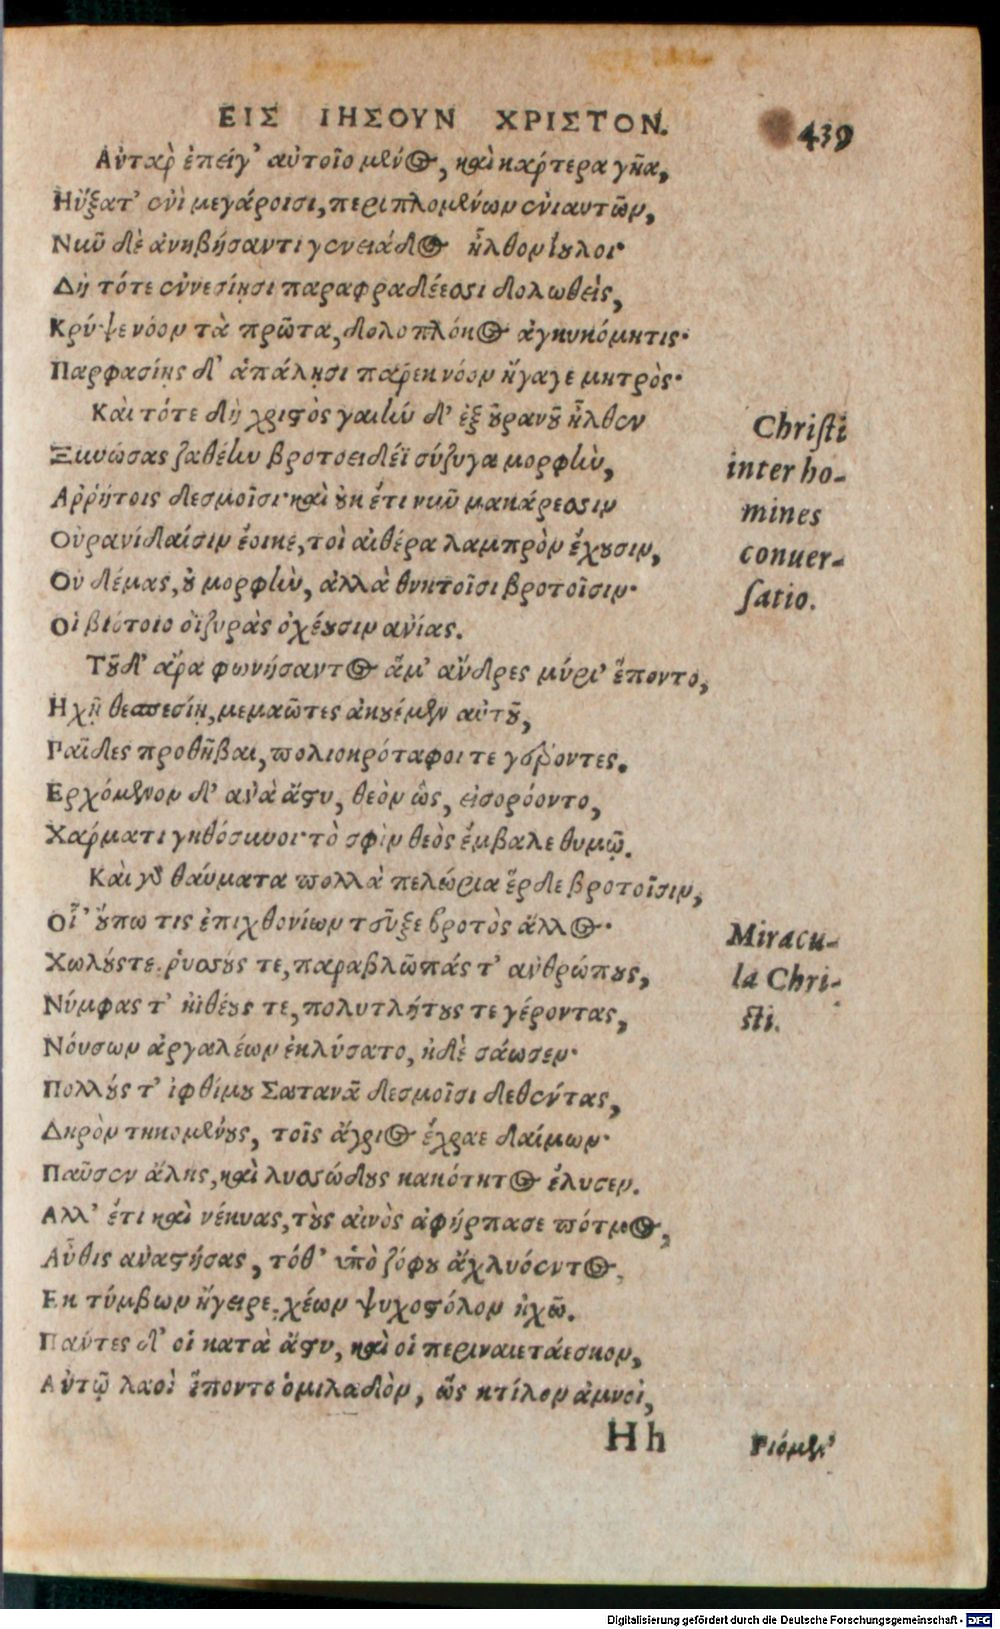 ΕΙΣ ΙΗΣΟΥΝ ΧΡΙΣΤΟΝ.
439
Αὐτὰρ ἐπείγ' αὐτοῖο μένος, καὶ κάρτερα γῆα,
Ηὔξατ' ἐνὶ μεγάροισι, περιπλομένων ἐνιαυτῶν,
Νιῦ δὲ ἀνηβήσαντι γενειάδος ἦλθον ἴουλοι·
Δὴ τότε ἐννεσίῃσι παραφραδέεσσι δολωθεὶς,
Κρύψε νόον τὰ πρῶτα, δολοπλόκος ἀγκυκόμητις·
Παρφασίῃς δ' ἀπάλῃσι πάρεκ νόον ἤγαγε μητρὸς·
Καὶ τότε δὴ χριστὸς γαιὴν δ' ἐξ οὐρανοῦ ἦλθεν
Ξυνώσας ζαθέην βροτοειδέϊ σύζυγα μορφὴν,
Αῤῥήτοις δεσμοῖσι· καὶ οὐκ ἔτι νιῦ μακάρεσσιν
Οὐρανίδαισιν ἔοικέ, τοὶ αἰθέρα λαμπρὸν ἔχουσιν,
Οὐ δέμας, οὐ μορφὴν, ἀλλὰ θνητοῖσι βροτοῖσιν·
Οἱ βιότοιο ὀϊζυρὰς ὀχέουσιν ἀνίας.
Τοῦ δ' ἄρα φωνήσαντος ἅμ' ἄνδρες μύρι' ἕποντο,
Ηχῇ θεσπεσίῃ, μεμαῶτες ἀκουέμεν αὐτοῦ,
Παῖδες προθῆβαι, πολιοκρόταφοι τε γέροντες.
Ερχόμενον δ' ἀνὰ ἄστυ, θεὸν ὣς, εἰσορόοντο,
Χάρματι γηθόσυνοι· τὸ σφὶν θεὸς ἔμβαλε θυμῷ.
Καὶ γὰρ θαύματα πολλὰ πελώρια ἕρδε βροτοῖσιν,
Οἷ' οὔπω τις ἐπιχθονίων τεῦξε βροτὸς ἄλλος·
Χωλούς τε ῥυσσούς τε, παραβλῶπάς τ' ἀνθρώπους,
Νύμφας τ' ἠϊθέους τε, πολυτλήτους τε γέροντας,
Νόυσων ἀργαλέων ἐκλύσατο, ἠδὲ σάωσεν·
Πολλούς τ' ἰφθίμου Σατανᾶ δεσμοῖσι δεθέντας,
Δηρὸν τηκομένους, τοῖς ἄγριος ἔχραε δαίμων·
Παῦσεν ἄλης, καὶ λυσσώδους κακότητος ἔλυσεν.
Αλλ' ἔτι καὶ νέκυας, τοὺς αἰνὸς ἀφήρπασε πότμος,
Αὖθις ἀναστήσας, τόθ' ὑπὸ ζόφου ἀχλυόεντος,
Εκ τύμβων ἤγειρε, χέων ψυχοστόλον ἠχῶ.
Πάντες δ' οἱ κατὰ ἄστυ, καὶ οἱ περιναιετάεσκον,
Αὐτῷ λαοὶ ἕποντο ὁμιλαδὸν, ὥς κτίλον ἀμνοὶ,
Hh
Πιόμεν'
Christi
inter ho-
mines
conuer-
satio.
Miracu-
la Chri-
sti.
Digitalisierung gefördert durch die Deutsche Forschungsgemeinschaft - DFG